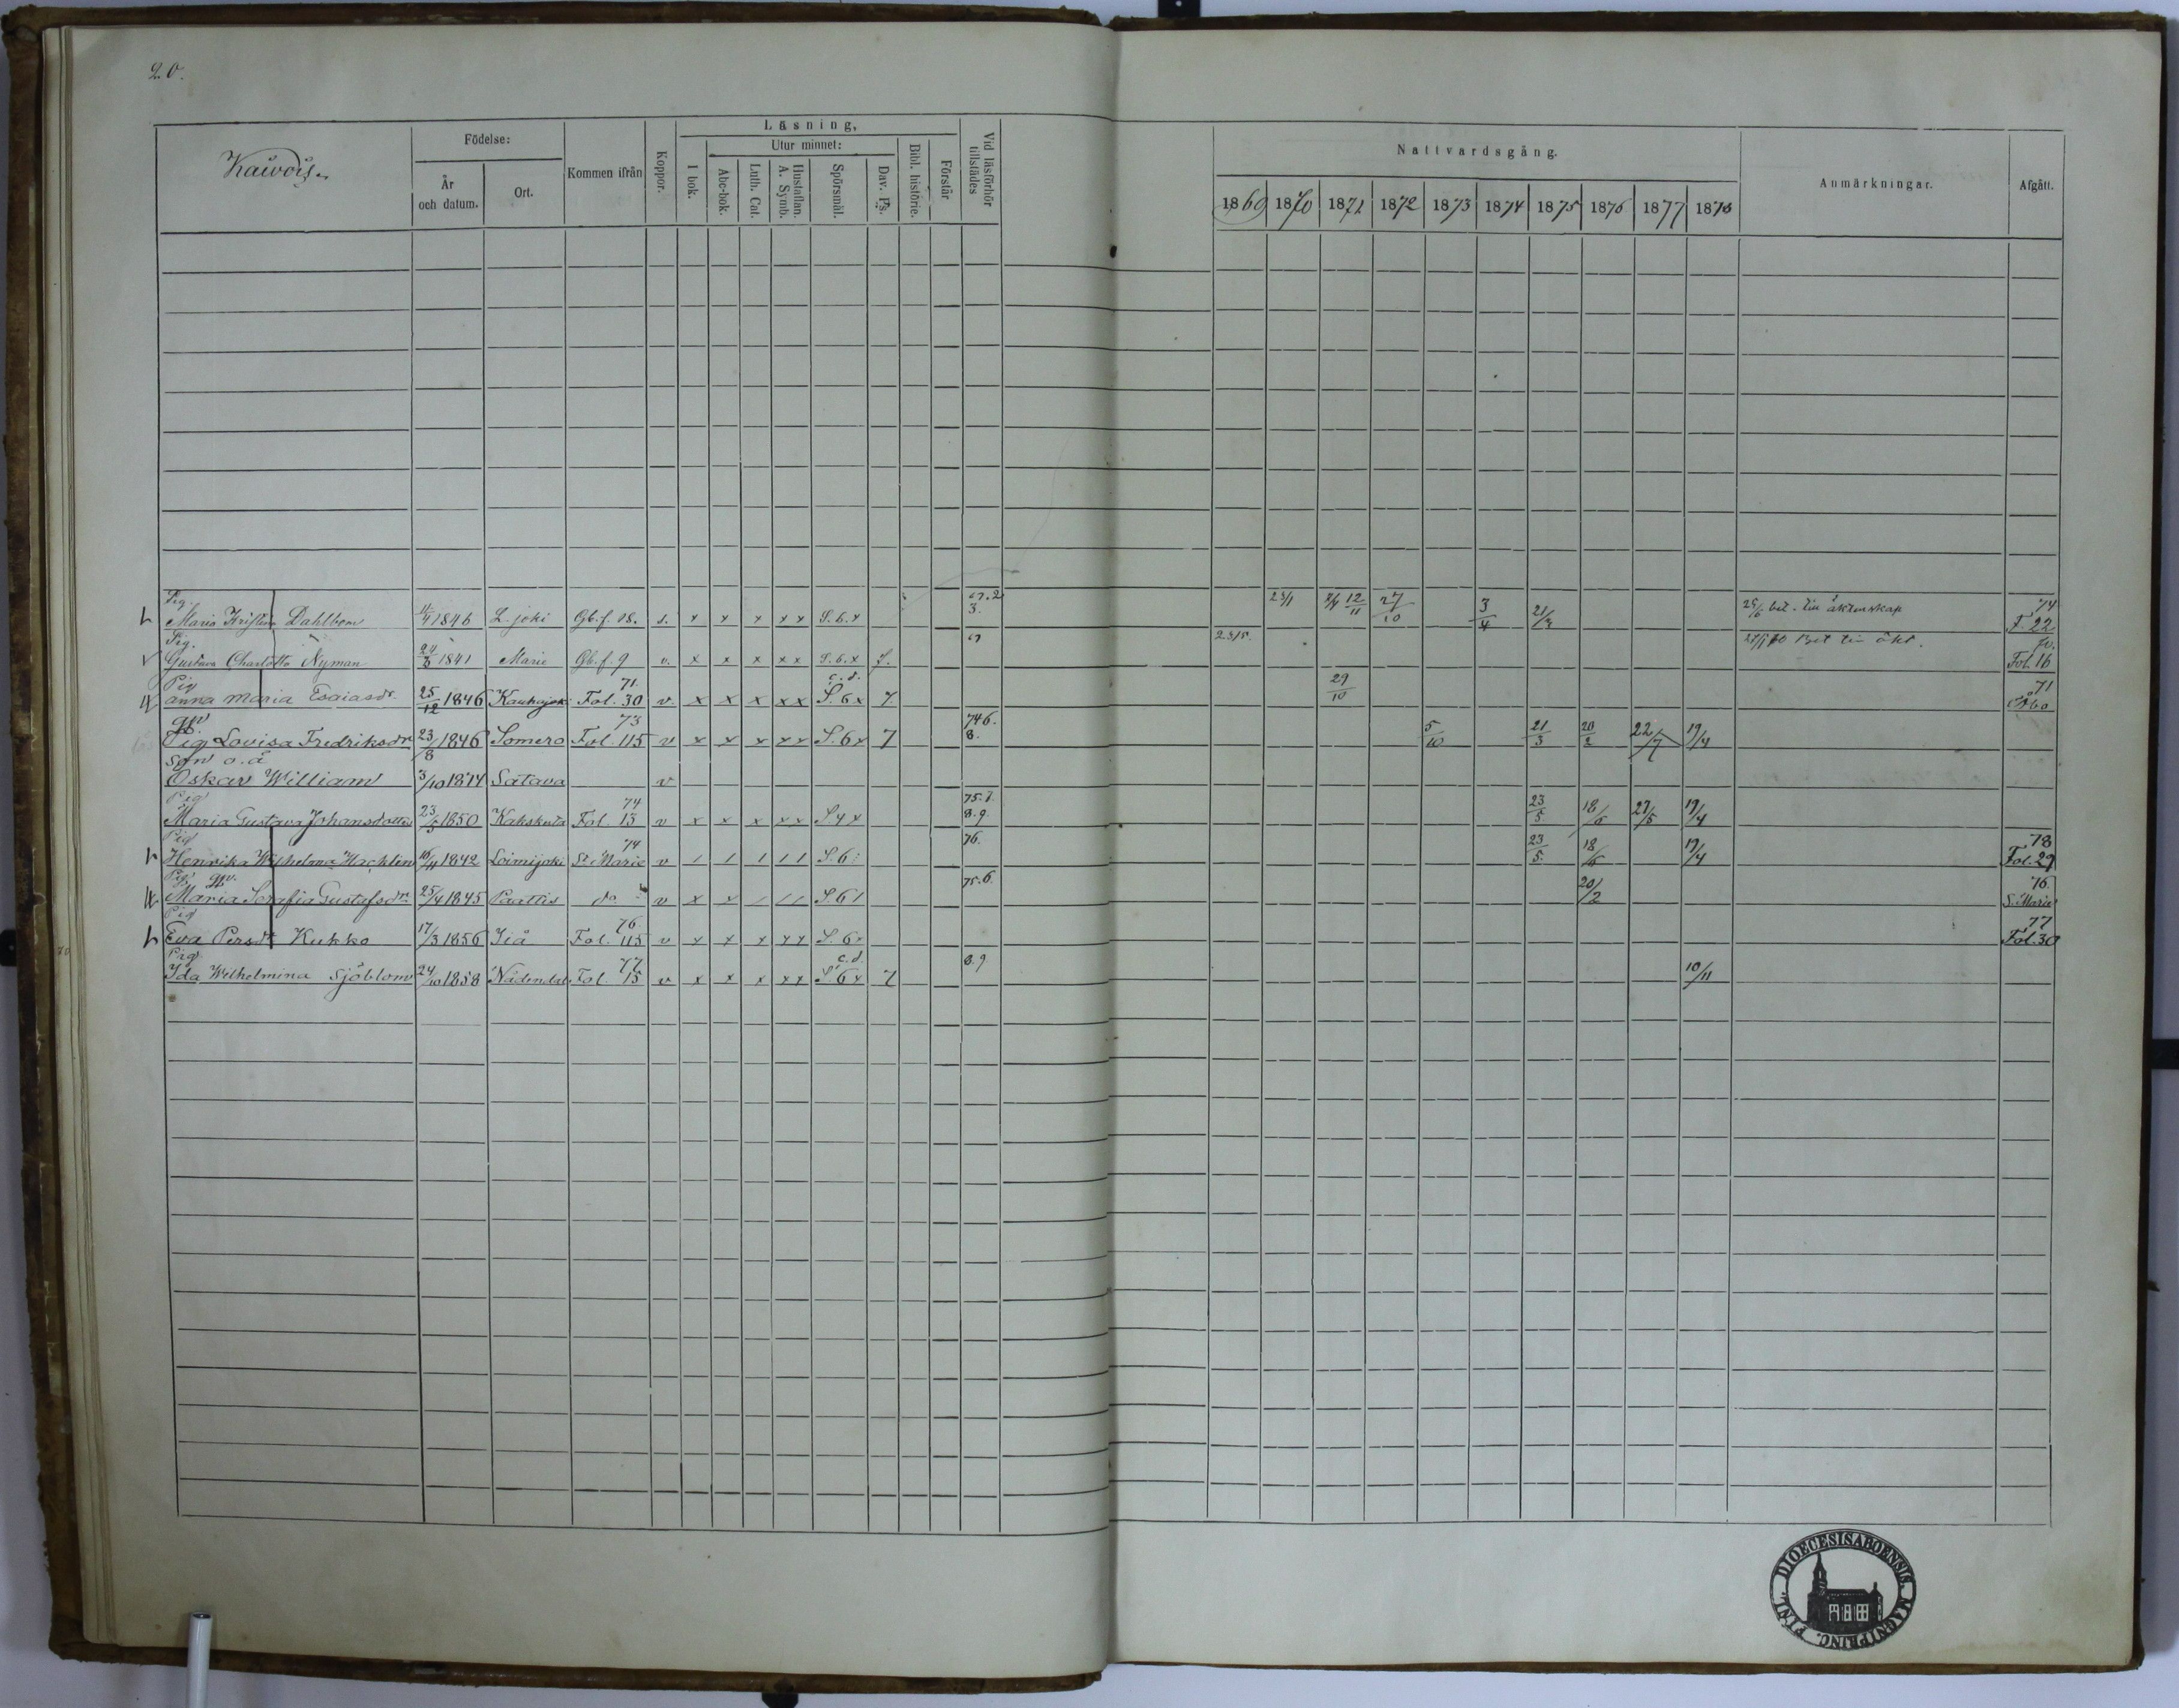 20.
Födelse:
Läsning,
Utur minnet:
Kommen ifrån
År och datum.
Ort.
Koppor.
I bok.
Abc-bok.
Luth. Cat.
Hustaflan. A. Symb.
Spörsmål.
Dav. Ps.
Bibl. historie.
Förstår
Vid läsförhör tillstädes
Nattvardsgång.
Anmärkningar.
Afgått.
1869 1870 1871 1872 1873 1874 1875 1876 1877 1878
Pig. 74
Maria Kristina Dahlbom 1846 L. joki Gb. f. 18. s. x x x x x S. 6. x 3. 12/11 27/10 3/4 21/3 bet. till äktenskap F. 22
Pig.
Gustava Charlotta Nyman 1841 Marie Gb. f. 9 v. x x x x x S. 6. x 7. 23/5. Bet till äkt. Fol. 16
Pig 71 c. d. 71
Anna Maria Esaiasdr. 25/12 1846 Kauhajoki Fol. 30 v. x x x x x S. 6 x 7. 29/10 Åbo
73 746.
Pig Lovisa Fredriksdr 23/8 1846 Somero Fol. 115 v x x x x x S. 6 x 7 8. 5/10 21/3 20/2 22/7 19/4
Son o. ä
Oskar William 3/10 1874 Satava v
Pig 74 75.7.
Maria Gustava Johansdotter 23/5 1850 Kakskerta Fol. 13 v x x x x x S 4 x 8.9. 23/5 18/6 27/5 19/4
Pig 74 76. 78
Henrika Wilhelmina Hacklin 16/11 1842 Loimijoki St Marie v / / / / / S. 6 23/5. 18/6 19/4 Fol. 29
Pig 75.6. 76.
Maria Serafia Gustafsdr 25/4 1845 Paattis do v x x / / / S. 6 / 20/2 S. Marie
Pig 76 77
Eva Persdr Kukko 17/3 1856 Iiå Fol. 115 v x x x x x S. 6 x Fol. 30
Pig 77 c. d. 8.9
Ida Wilhelmina Sjöblom 24/10 1858 Nådendal Fol. 15 v x x x x x S. 6 x 7 10/11
DIOECESIS ABOENSIS. MAGNI PRINC. FINL.